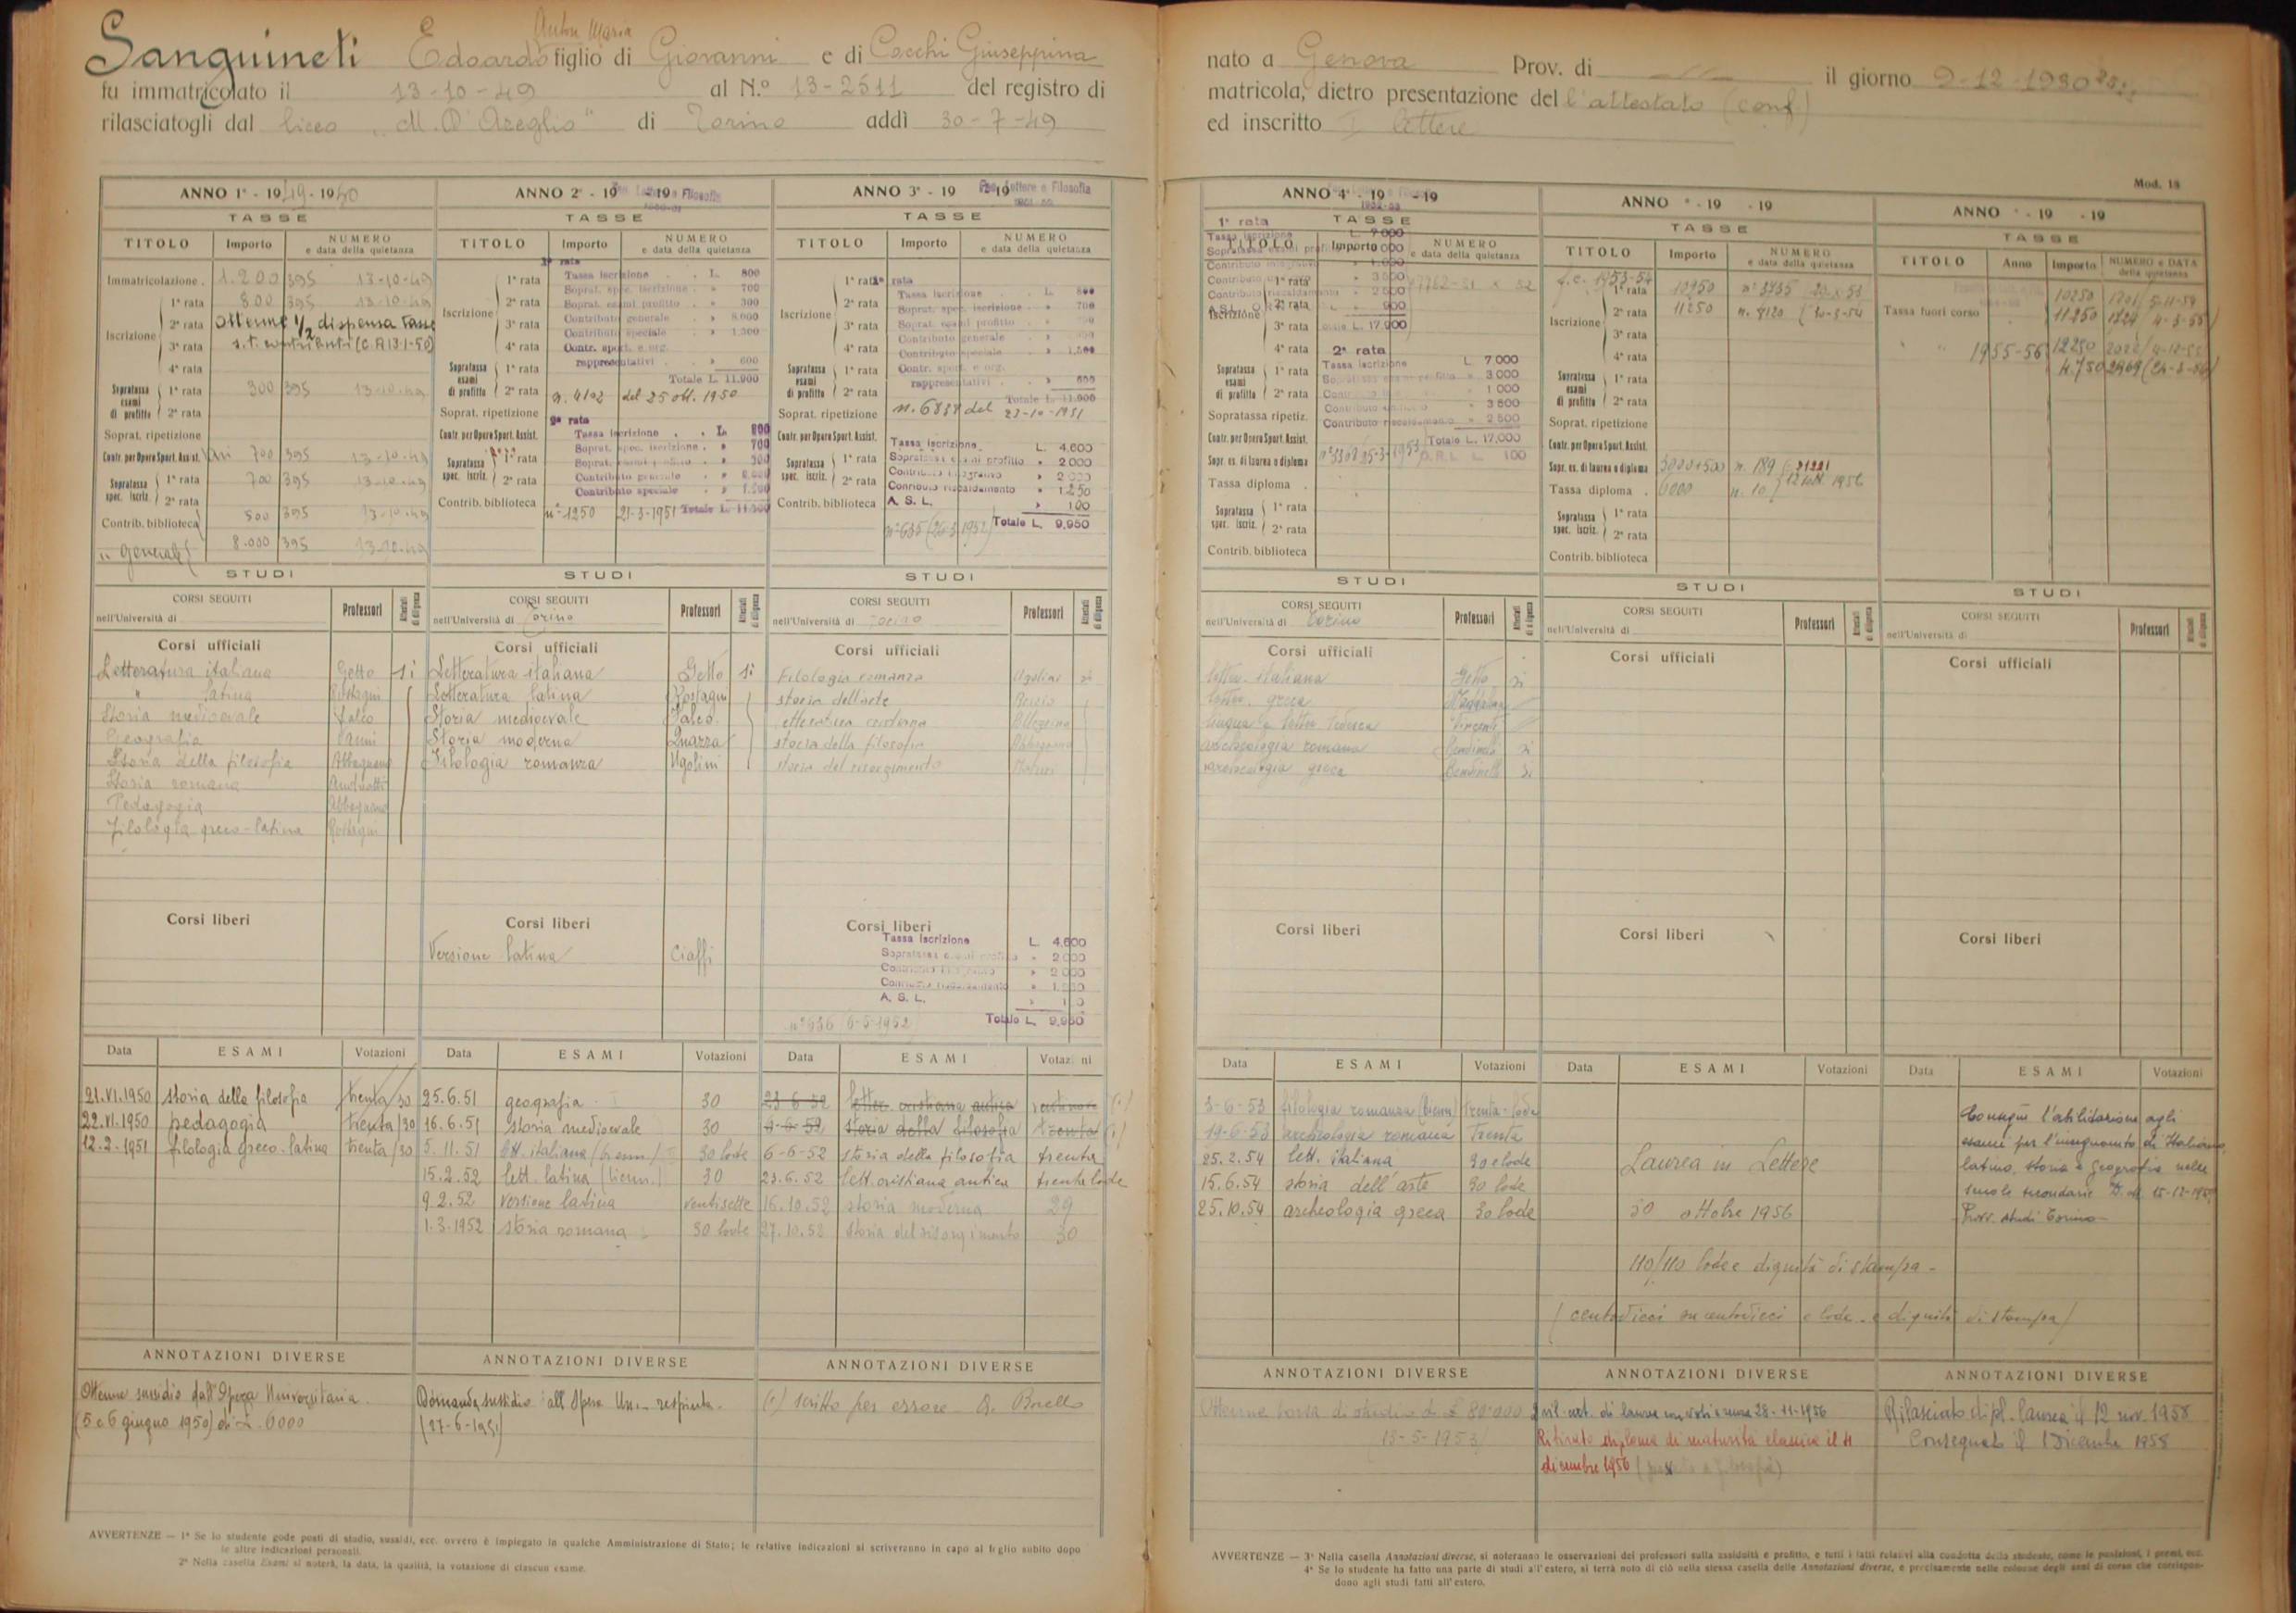 Anton Maria
Sanguineti Edoardo figlio di Giovanni e di Cocchi Giuseppina
fu immatricolato il 13-10-49 al N.º 13-2511 del registro di
rilasciatogli dal liceo "M. D'Azeglio" di Torino addì 30-7-49
nato a Genova Prov. di il giorno 9-12-1930
matricola, dietro presentazione del l'attestato (conf)
ed inscritto I lettere
Mod. 18
ANNO 1º - 1949 - 1950
TASSE
TITOLO Importo NUMERO e data della quietanza
Immatricolazione . 1.200 395 13-10-49
Iscrizione 1ª rata 800 395 13-10-49
2ª rata ottenne 1/2 dispensa tasse
3ª rata s.t. contributi (C.A 13-1-50)
4ª rata
Sopratassa esami di profitto 1ª rata 300 395 13-10-49
2ª rata
Soprat. ripetizione
Contr. per Opere Sport. Assist. 700 395 13-10-49
Sopratassa spec. iscriz. 1ª rata 700 395 13-10-49
2ª rata
Contrib. biblioteca 500 395 13-10-49
" generale 8.000 395 13-10-49
STUDI
CORSI SEGUITI Professori Attestati di diligenza
nell'Università di
Corsi ufficiali
Letteratura italiana Getto si
" latina Rostagni
Storia medioevale Falco
Geografia
Storia della filosofia Abbagnano
Storia romana
Pedagogia Abbagnano
Filologia greco-latina Rostagni
Corsi liberi
Data ESAMI Votazioni
21.VI.1950 storia della filosofia trenta/30
22.VI.1950 pedagogia trenta/30
12.2.1951 filologia greco-latina trenta/30
ANNOTAZIONI DIVERSE
Ottenne sussidio dall'Opera Universitaria
(5 e 6 giugno 1950) di £. 6000
ANNO 2º - 19 - 19
Fac. Lettere e Filosofia
1950-51
TASSE
TITOLO Importo NUMERO e data della quietanza
1ª rata
Tassa iscrizione . . L. 800
Soprat. spec. iscrizione . » 700
Soprat. esami profitto . » 300
Contributo generale . » 8.000
Contributo speciale . » 1.500
Contr. sport. e org.
rappresentativi . . » 600
Totale L. 11.900
n. 4102 del 25 ott. 1950
2ª rata
Tassa iscrizione . . L. 800
Soprat. spec. iscrizione . » 700
Soprat. esami profitto . » 300
Contributo generale . » 8.000
Contributo speciale . » 1.500
nº 1250 21-3-1951 Totale L. 11.300
Iscrizione 1ª rata
2ª rata
3ª rata
4ª rata
Sopratassa esami di profitto 1ª rata
2ª rata
Soprat. ripetizione
Contr. per Opere Sport. Assist.
Sopratassa spec. iscriz. 1ª rata
2ª rata
Contrib. biblioteca
STUDI
CORSI SEGUITI Professori Attestati di diligenza
nell'Università di Torino
Corsi ufficiali
Letteratura italiana Getto si
Letteratura latina Rostagni
Storia medioevale Falco
Storia moderna Quazza
Filologia romanza Ugolini
Corsi liberi
Versione latina Ciaffi
Data ESAMI Votazioni
25.6.51 geografia I 30
16.6.51 storia medioevale 30
5.11.51 lett. italiana (bienn.) 30 lode
15.2.52 lett. latina (bienn.) 30
9.2.52 versione latina ventisette
1.3.1952 storia romana 30 lode
ANNOTAZIONI DIVERSE
Domanda sussidio all'Opera Un. respinta.
(27-6-1951)
ANNO 3º - 19 - 19
Fac. Lettere e Filosofia
1951-52
TASSE
TITOLO Importo NUMERO e data della quietanza
1ª rata
Tassa iscrizione . . L. 800
Soprat. spec. iscrizione . » 700
Soprat. esami profitto . »
Contributo generale . »
Contributo speciale . » 1.500
Contr. sport. e org.
rappresentativi . . » 600
Totale L. 11.900
n. 6838 del 23-10-1951
Tassa iscrizione L. 4.600
Sopratassa esami profitto » 2 000
Contributo integrativo » 2 000
Contributo riscaldamento » 1.250
A. S. L. » 100
nº 635 (26-3-1952) Totale L. 9,950
Iscrizione 1ª rata
2ª rata
3ª rata
4ª rata
Sopratassa esami di profitto 1ª rata
2ª rata
Soprat. ripetizione
Contr. per Opere Sport. Assist.
Sopratassa spec. iscriz. 1ª rata
2ª rata
Contrib. biblioteca
STUDI
CORSI SEGUITI Professori Attestati di diligenza
nell'Università di Torino
Corsi ufficiali
Filologia romanza Ugolini si
storia dell'arte
letteratura cristiana Pellegrino
storia della filosofia Abbagnano
storia del risorgimento
Corsi liberi
Tassa iscrizione L. 4.600
Sopratassa esami profitto » 2 000
Contributo integrativo » 2 000
Contributo riscaldamento » 1.250
A. S. L. » 100
nº 636 (6-5-1952) Totale L. 9,950
Data ESAMI Votazioni
23-6-52 letter. cristiana antica (1)
6-6-52 storia della filosofia trenta (1)
6-6-52 storia della filosofia trenta
23.6.52 lett. cristiana antica trenta lode
16.10.52 storia moderna 29
27.10.52 storia del risorgimento 30
ANNOTAZIONI DIVERSE
(1) scritto per errore
ANNO 4º - 19 - 19
1952-53
TASSE
TITOLO Importo NUMERO e data della quietanza
1ª rata
Tassa iscrizione L. 7 000
Soprattassa esami profitto
Contributo integrativo » 1.000
Contributo » 3 500
Contributo riscaldamento » 2 500
Totale L. 17,000
2ª rata
Tassa iscrizione L 7 000
Soprattassa esami profitto » 3 000
» 1 000
Contributo » 3 500
Contributo riscaldamento » 2 500
Totale L. 17,000
nº 3368 25-3-1953 O.R.I. L. 100
Iscrizione 1ª rata
2ª rata
3ª rata
4ª rata
Sopratassa esami di profitto 1ª rata
2ª rata
Sopratassa ripetiz.
Contr. per Opere Sport. Assist.
Sopr. es. di laurea o diploma
Tassa diploma .
Sopratassa spec. iscriz. 1ª rata
2ª rata
Contrib. biblioteca
STUDI
CORSI SEGUITI Professori Attestati di diligenza
nell'Università di Torino
Corsi ufficiali
letter. italiana Getto si
letter. greca Maddalena
lingua e letter. tedesca Vincenti
archeologia romana Bendinelli si
archeologia greca Bendinelli si
Corsi liberi
Data ESAMI Votazioni
3-6-53 filologia romanza (bienn) trenta-lode
19-6-53 archeologia romana trenta
25.2.54 lett. italiana 30 e lode
15.6.54 storia dell'arte 30 lode
25.10.54 archeologia greca 30 lode
ANNOTAZIONI DIVERSE
Ottenne borsa di studio di £ 80'000
13-5-1953
ANNO º - 19 - 19
TASSE
TITOLO Importo NUMERO e data della quietanza
f.c. 1953-54
Iscrizione 1ª rata 10950 nº 3735
2ª rata 11250 n. 8120 (30-3-54
3ª rata
4ª rata
Sopratassa esami di profitto 1ª rata
2ª rata
Soprat. ripetizione
Contr. per Opere Sport. Assist.
Sopr. es. di laurea o diploma 3000+500 n. 189
Tassa diploma . 6000 n. 10 12 ott. 1956
Sopratassa spec. iscriz. 1ª rata
2ª rata
Contrib. biblioteca
STUDI
CORSI SEGUITI Professori Attestati di diligenza
nell'Università di
Corsi ufficiali
Corsi liberi
Data ESAMI Votazioni
Laurea in Lettere
30 ottobre 1956
110/110 lode e dignità di stampa -
(centodieci su centodieci e lode e dignità di stampa)
ANNOTAZIONI DIVERSE
ril. cert. di laurea con voti e senza 28-11-1956
Ritirato diploma di maturità classica il 4
dicembre 1956
ANNO º - 19 - 19
TASSE
TITOLO Anno Importo NUMERO e DATA della quietanza
Tassa fuori corso 10250 5-11-54
11250 1324 4-3-55
1955-56 12250
4.750 2969 (24-3-56)
STUDI
CORSI SEGUITI Professori Attestati di diligenza
nell'Università di
Corsi ufficiali
Corsi liberi
Data ESAMI Votazioni
Consegue l'abilitazione agli
esami per l'insegnamento di Italiano,
latino, storia e geografia nelle
scuole secondarie D. d. 15-12-1959
Provv. studi Torino
ANNOTAZIONI DIVERSE
Rilasciato dipl. laurea il 12 nov. 1958
Consegnato il 1 Dicembre 1958
AVVERTENZE — 1ª Se lo studente gode posti di studio, sussidi, ecc. ovvero è impiegato in qualche Amministrazione di Stato; le relative indicazioni si scriveranno in capo al foglio subito dopo
le altre indicazioni personali.
2ª Nella casella Esami si noterà, la data, la qualità, la votazione di ciascun esame.
AVVERTENZE — 3ª Nella casella Annotazioni diverse, si noteranno le osservazioni dei professori sulla assiduità e profitto, e tutti i fatti relativi alla condotta dello studente, come le punizioni, i premi, ecc.
4ª Se lo studente ha fatto una parte di studi all'estero, si terrà noto di ciò nella stessa casella delle Annotazioni diverse, e precisamente nelle colonne degli anni di corso che corrispon-
dono agli studi fatti all'estero.